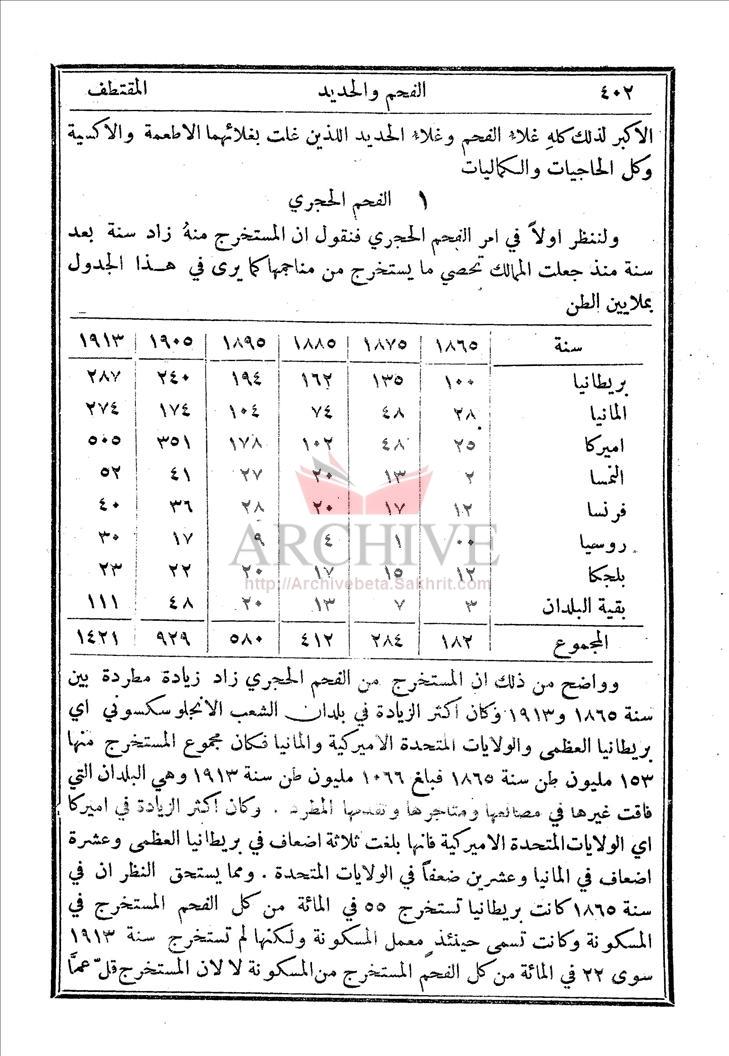 ٤٠٢ الفحم والحديد المقتطف
الاكبر لذلك كلهِ غلاء الفحم وغلاء الحديد اللذين غلت بغلائهما الاطعمة والاكسية
وكل الحاجيات والكماليات
١ الفحم الحجري
ولننظر اولاً في امر الفحم الحجري فنقول ان المستخرج منهُ زاد سنة بعد
سنة منذ جعلت الممالك تحصي ما يستخرج من مناجمها كما يرى في هذا الجدول
بملايين الطن
سنة ١٨٦٥ ١٨٧٥ ١٨٨٥ ١٨٩٥ ١٩٠٥ ١٩١٣
بريطانيا ١٠٠ ١٣٥ ١٦٢ ١٩٤ ٢٤٠ ٢٨٧
المانيا ٢٨ ٤٨ ٧٤ ١٠٤ ١٧٤ ٢٧٤
اميركا ٢٥ ٤٨ ١٠٢ ١٧٨ ٣٥١ ٥٠٥
النمسا ٢ ١٣ ٢٠ ٢٧ ٤١ ٥٢
فرنسا ١٢ ١٧ ٢٠ ٢٨ ٣٦ ٤٠
روسيا ٠٠ ١ ٤ ٩ ١٧ ٣٠
بلجكا ١٢ ١٥ ١٧ ٢٠ ٢٢ ٢٣
بقية البلدان ٣ ٧ ١٣ ٢٠ ٤٨ ١١١
المجموع ١٨٢ ٢٨٤ ٤١٢ ٥٨٠ ٩٢٩ ١٤٢١
ARCHIVE
http://Archivebeta.Sakhrit.com
وواضح من ذلك ان المستخرج من الفحم الحجري زاد زيادة مطردة بين
سنة ١٨٦٥ و١٩١٣ وكان أكثر الزيادة في بلدان الشعب الانجلوسكسوني اي
بريطانيا العظمى والولايات المتحدة الاميركية والمانيا فكان مجموع المستخرج منها
١٥٣ مليون طن سنة ١٨٦٥ فبلغ ١٠٦٦ مليون طن سنة ١٩١٣ وهي البلدان التي
فاقت غيرها في مصانعها ومتاجرها وتقدمها المطرد . وكان اكثر الزيادة في اميركا
اي الولايات المتحدة الاميركية فانها بلغت ثلاثة اضعاف في بريطانيا العظمى وعشرة
اضعاف في المانيا وعشرين ضعفاً في الولايات المتحدة . ومما يستحق النظر ان في
سنة ١٨٦٥ كانت بريطانيا تستخرج ٥٥ في المائة من كل الفحم المستخرج في
المسكونة وكانت تسمى حينئذٍ معمل المسكونة ولكنها لم تستخرج سنة ١٩١٣
سوى ٢٢ في المائة من كل الفحم المستخرج من المسكونة لا لان المستخرج قلَّ عمَّا